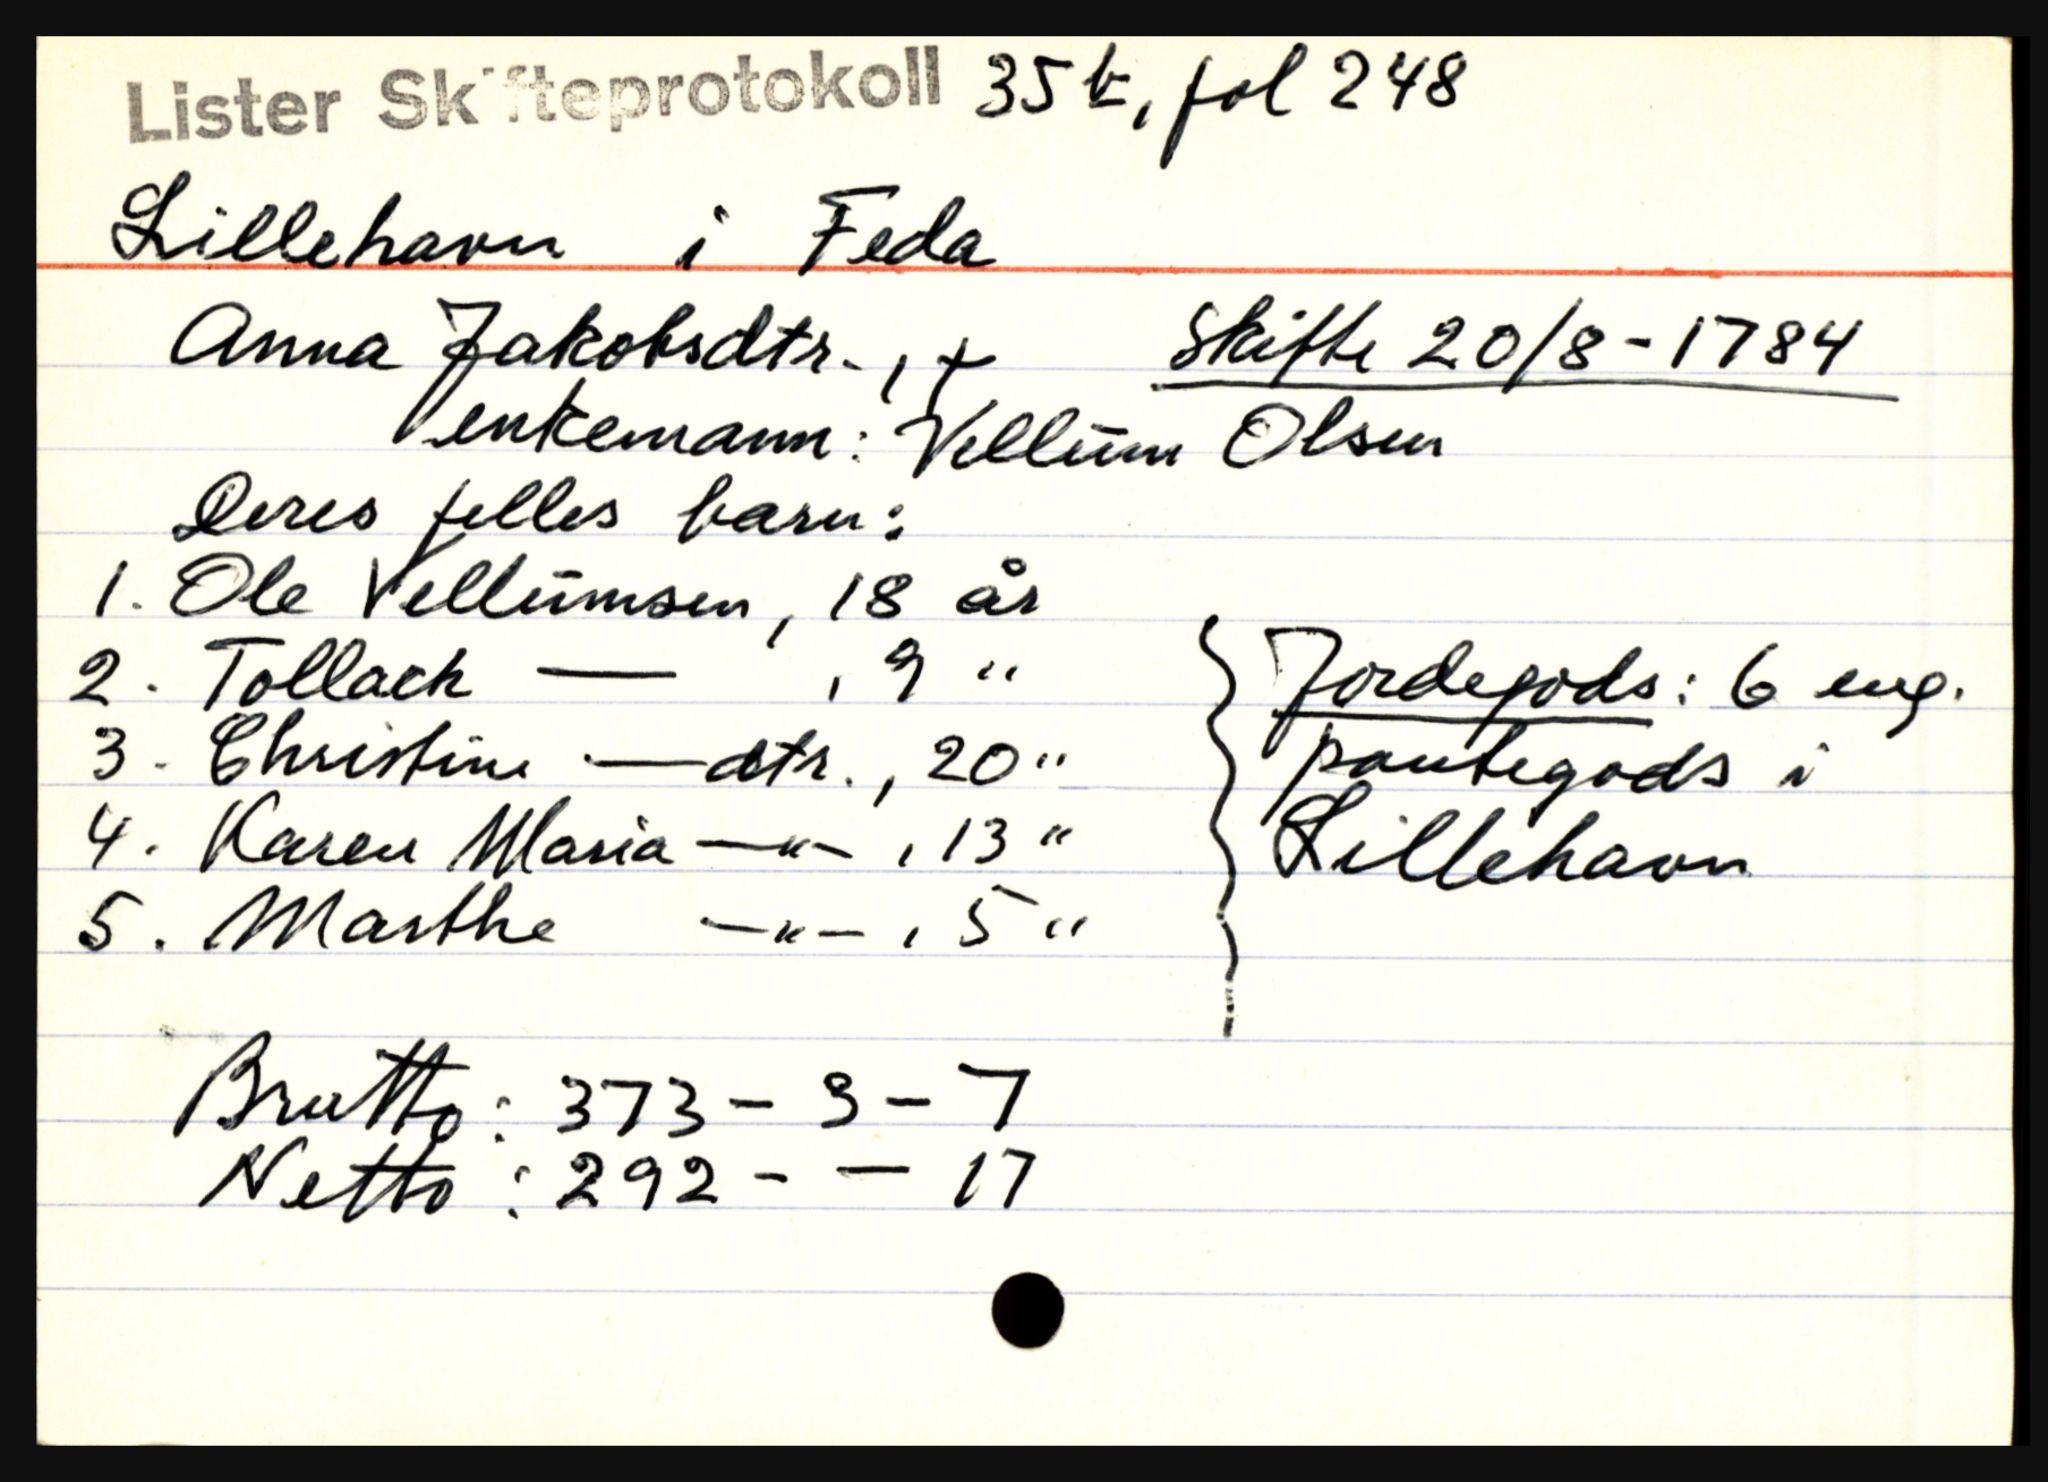 Lister Skifteprotokoll 35 b, fol 248
Lillehavn i Feda
Anna Jakobsdtr., † Skifte 20/8-1784
enkemann: Vellum Olsen
Deres felles barn:
1. Ole Vellumsen, 18 år
2. Tollack — , 9 "
3. Christine — dtr., 20 "
4. Karen Maria —"— , 13 "
5. Marthe —"— , 5 "
Jordegods: 6 eng.
pantegods i
Lillehavn
Brutto: 373 - 3 - 7
Netto: 292 - — 17